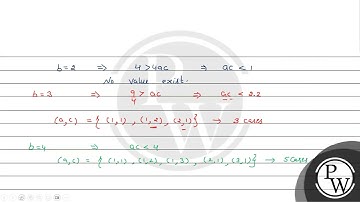 b=2 ⇒ 4>4ac ⇒ ac < 1
No value exist.
b=3 ⇒ 9/4 > ac ⇒ ac < 2.2
(a,c) = { (1,1) , (1,2) , (2,1)} → 3 cases
b=4 ⇒ ac < 4
(a,c) = { (1,1) , (1,2) , (1,3) , (2,1) , (3,1)} → 5 cases
PW